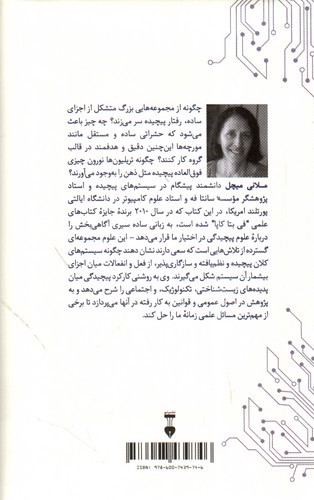 چگونه از مجموعه‌هایی بزرگ متشکل از اجزای
ساده، رفتار پیچیده سر می‌زند؟ چه چیز باعث
می‌شود که حشراتی ساده و مستقل مانند
مورچه‌ها این‌چنین دقیق و هدفمند در قالب
گروه کار کنند؟ چگونه تریلیون‌ها نورون چیزی
فوق‌العاده پیچیده مثل ذهن را به‌وجود می‌آورند؟
ملانی میچل دانشمند پیشگام در سیستم‌های پیچیده و استاد
پژوهشگر مؤسسه سانتا فه و استاد علوم کامپیوتر در دانشگاه ایالتی
پورتلند امریکا، در این کتاب که در سال ۲۰۱۰ برندهٔ جایزهٔ کتاب‌های
علمی "فی بتا کاپا" شده است، به زبانی ساده سیری آگاهی‌بخش را
دربارهٔ علوم پیچیدگی در اختیار ما قرار می‌دهد - این علوم مجموعه‌ای
گسترده از تلاش‌هایی است که سعی دارند نشان دهند چگونه سیستم‌های
کلان پیچیده و نظم‌یافته و سازگاری‌پذیر، از فعل و انفعالات میان اجزای
بیشمار آن سیستم شکل می‌گیرند. وی به روشنی کارکرد پیچیدگی میان
پدیده‌های زیست‌شناختی، تکنولوژیک، و اجتماعی را شرح می‌دهد و به
پژوهش در اصول عمومی و قوانین به کار رفته در آنها می‌پردازد تا برخی
از مهم‌ترین مسائل علمی زمانهٔ ما را حل کند.
ISBN: 978-600-7439-74-6